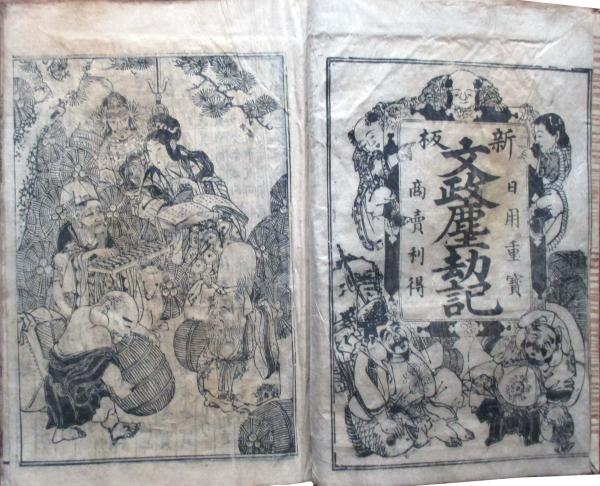 新板
日用重寳
文政塵劫記
商賣利得